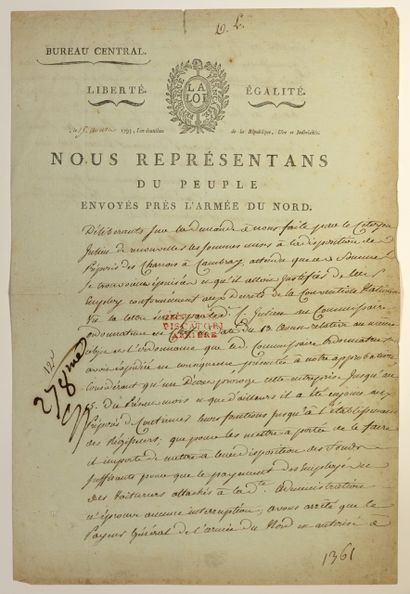 D. L.
BUREAU CENTRAL.
LA
LOI
LIBERTÉ. ÉGALITÉ.
1793, l'an deuxième de la République, Une et Indivisible.
NOUS REPRÉSENTANS
DU PEUPLE
ENVOYÉS PRÈS L'ARMÉE DU NORD.
Délibérants sur la demande à nous faite par le Citoyen
Julien de renouveller les sommes mises à la disposition de
Préposés des Charois à Cambray, attendu que
se trouve épuisée et qu'il a justifié de
conformément aux Décrets de la Convention Nationale
Vu la lettre Julien au Commissaire
ordonnateur date du 13 relative au
de l'ordonnance que le Commissaire ordonnateur
présentée à notre approbation
Considérant qu'un Décret proroge cette entreprise jusqu'au
15 du présent mois et que d'ailleurs il a été enjoint aux
Préposés de continuer leurs fonctions jusqu'à l'établissement
des Régisseurs, que pour les mettre à portée de le faire
il importe de mettre à leur disposition des fonds
suffisants pour que le payement des employés et
des voituriers attachés à la dte administration
n'éprouve aucune interruption, avons arrêté que le
Payeur Général de l'armée du Nord est autorisé à
278me
1361